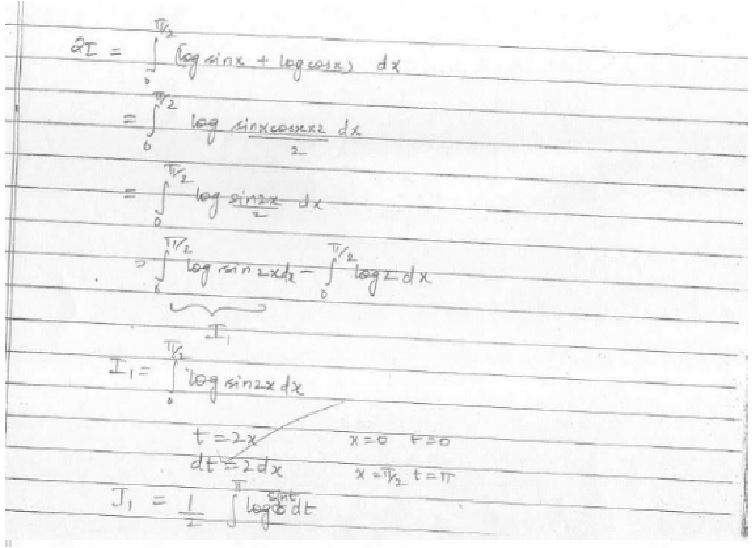 2I = ∫₀^{π/2} (log sinx + log cosx) dx
= ∫₀^{π/2} log sinxcosx×2/2 dx
= ∫₀^{π/2} log sin2x/2 dx
= ∫₀^{π/2} log sin 2xdx − ∫₀^{π/2} log 2 dx
I₁
I₁ = ∫₀^{π/2} log sin2x dx
t = 2x x=0 t=0
dt = 2dx x=π/2 t=π
I₁ = 1/2 ∫^{π} log sint dt